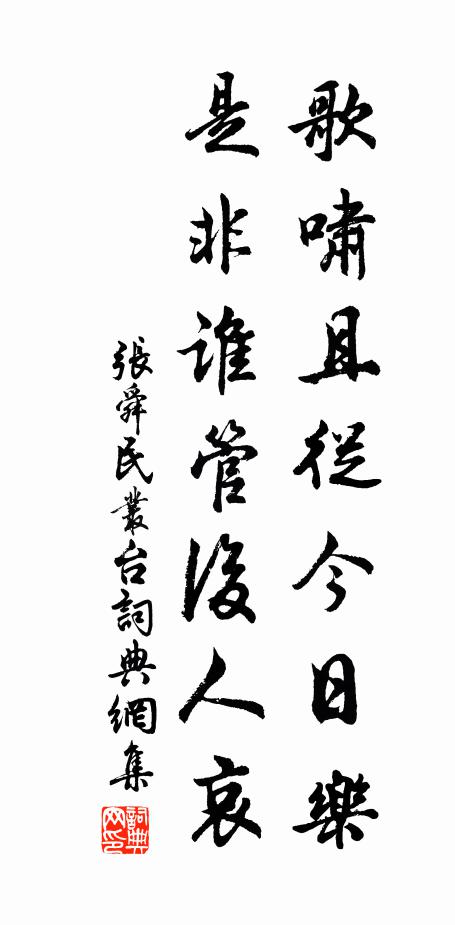 歌嘯且從今日樂
是非誰管後人哀
張舜民叢台詞典網集
詞典网印